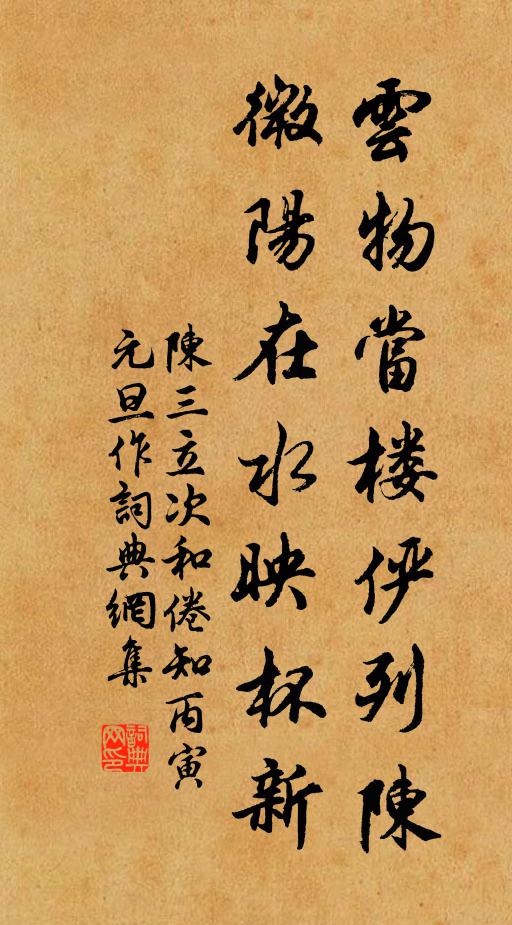 雲物當楼俨列陳
微陽在水映杯新
陳三立次和倦知丙寅
元旦作詞典網集
詞典網印